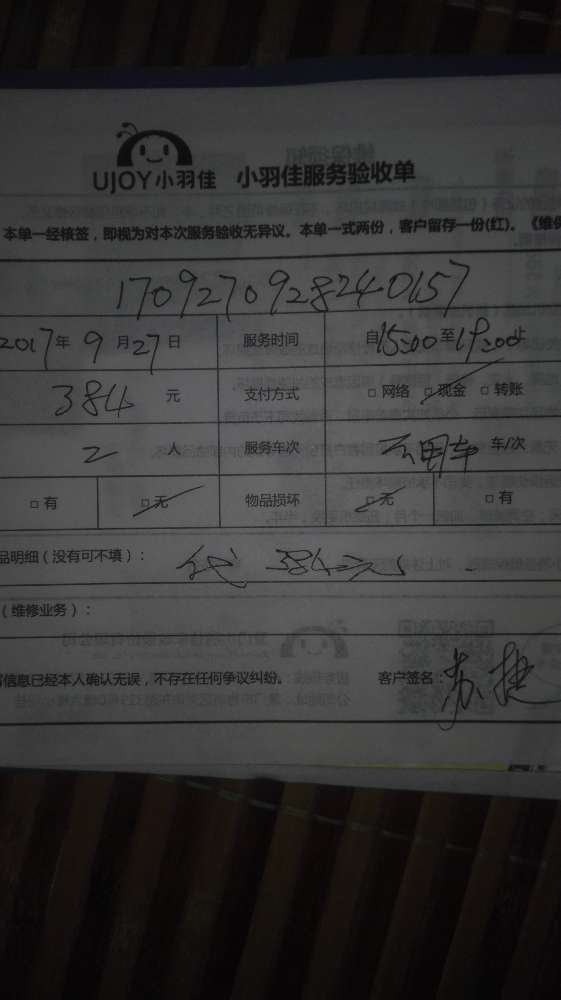 UJOY小羽佳 小羽佳服务验收单
本单一经核签，即视为对本次服务验收无异议。本单一式两份，客户留存一份(红)。《维保
1709270928240157
2017年9月27日 服务时间 自15:00至19:00止
384元 支付方式 □网络 □现金 □转账
2人 服务车次 不用车 车/次
□有 □无 物品损坏 □无 □有
品明细（没有可不填）： 代 384元
（维修业务）：
信息已经本人确认无误，不存在任何争议纠纷。 客户签名：苏捷